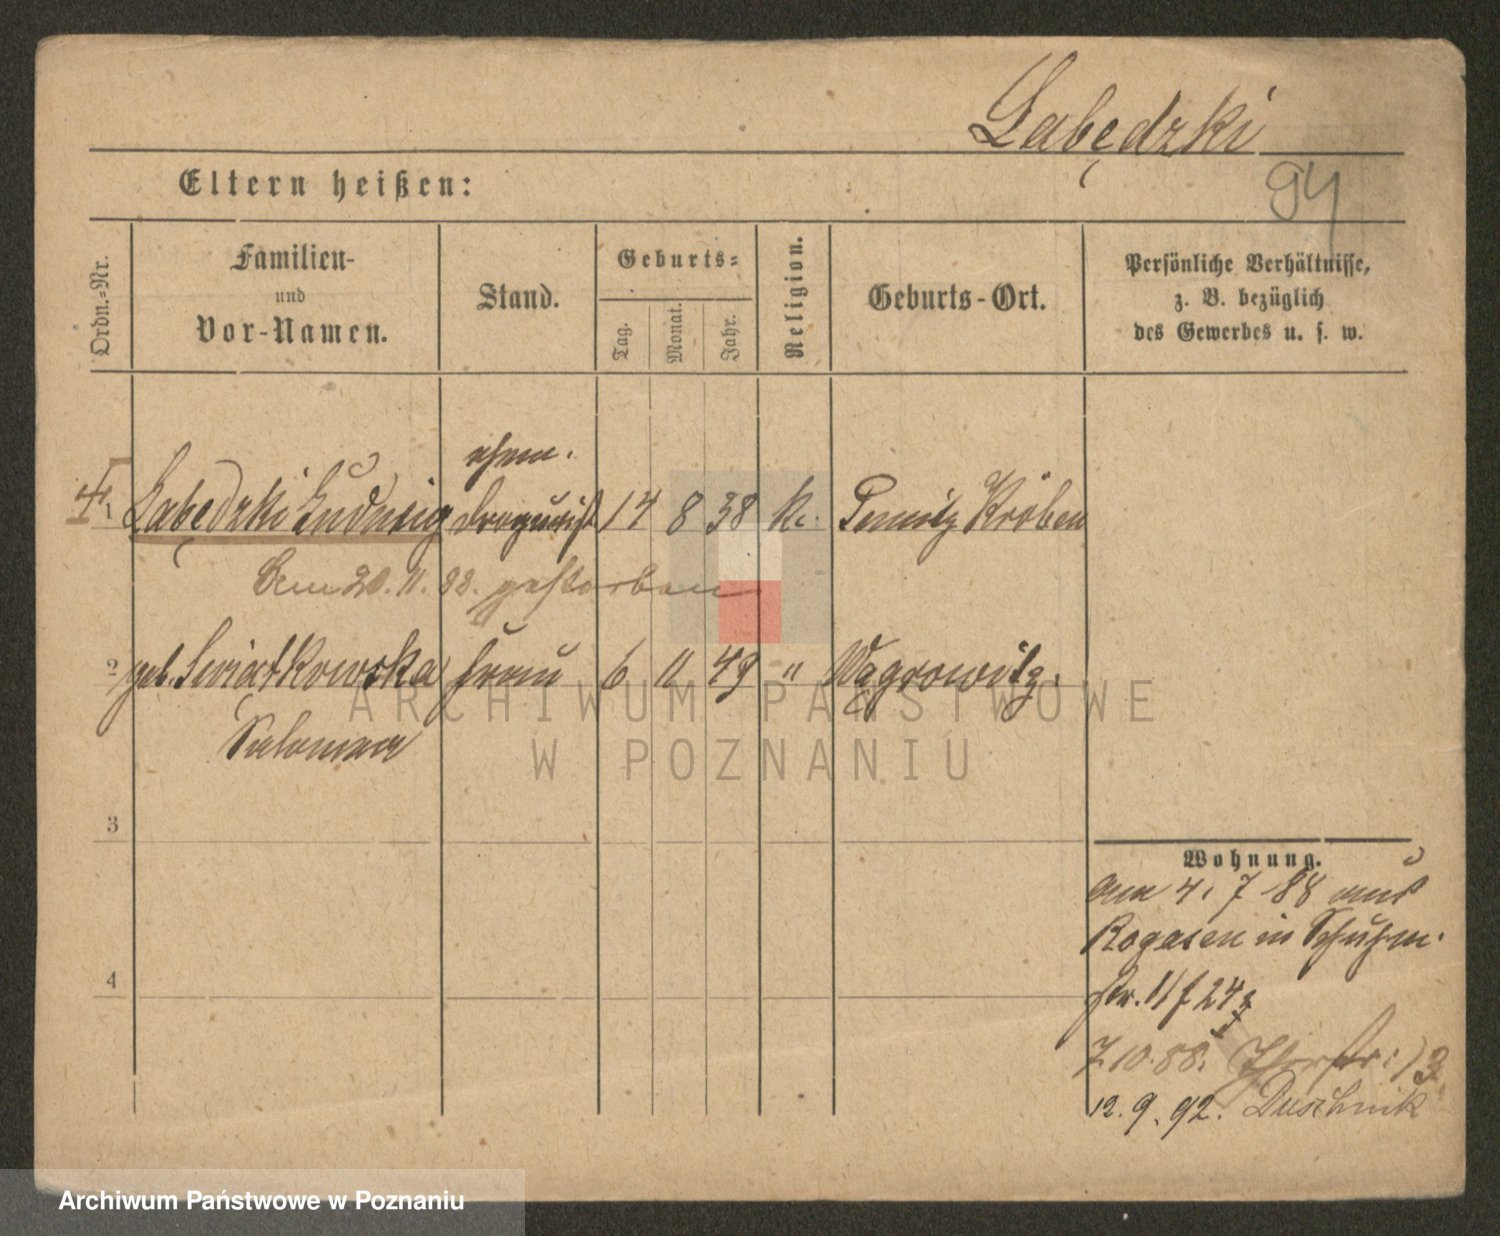 Łabędzki
94
Eltern heißen:
Ordn.-Nr.
Familien-
und
Vor-Namen.
Stand.
Geburts-
Tag.
Monat.
Jahr.
Religion.
Geburts-Ort.
Persönliche Verhältnisse,
z. B. bezüglich
des Gewerbes u. s. w.
ehem.
1 Łabędzki Ludwig Droguist 14 8 38 k. Kröben
Am 20. 11. 88. gestorben
2 geb. Swiątkowska Frau 6 11 49 " Wągrowitz.
Salomea
ARCHIWUM PAŃSTWOWE
W POZNANIU
3
4
Wohnung.
am 4. 7 88 aus
Rogasen in Schuhm.
str. 11 f 24
7.10.88. 13
12. 9. 92. Duschnik
Archiwum Państwowe w Poznaniu